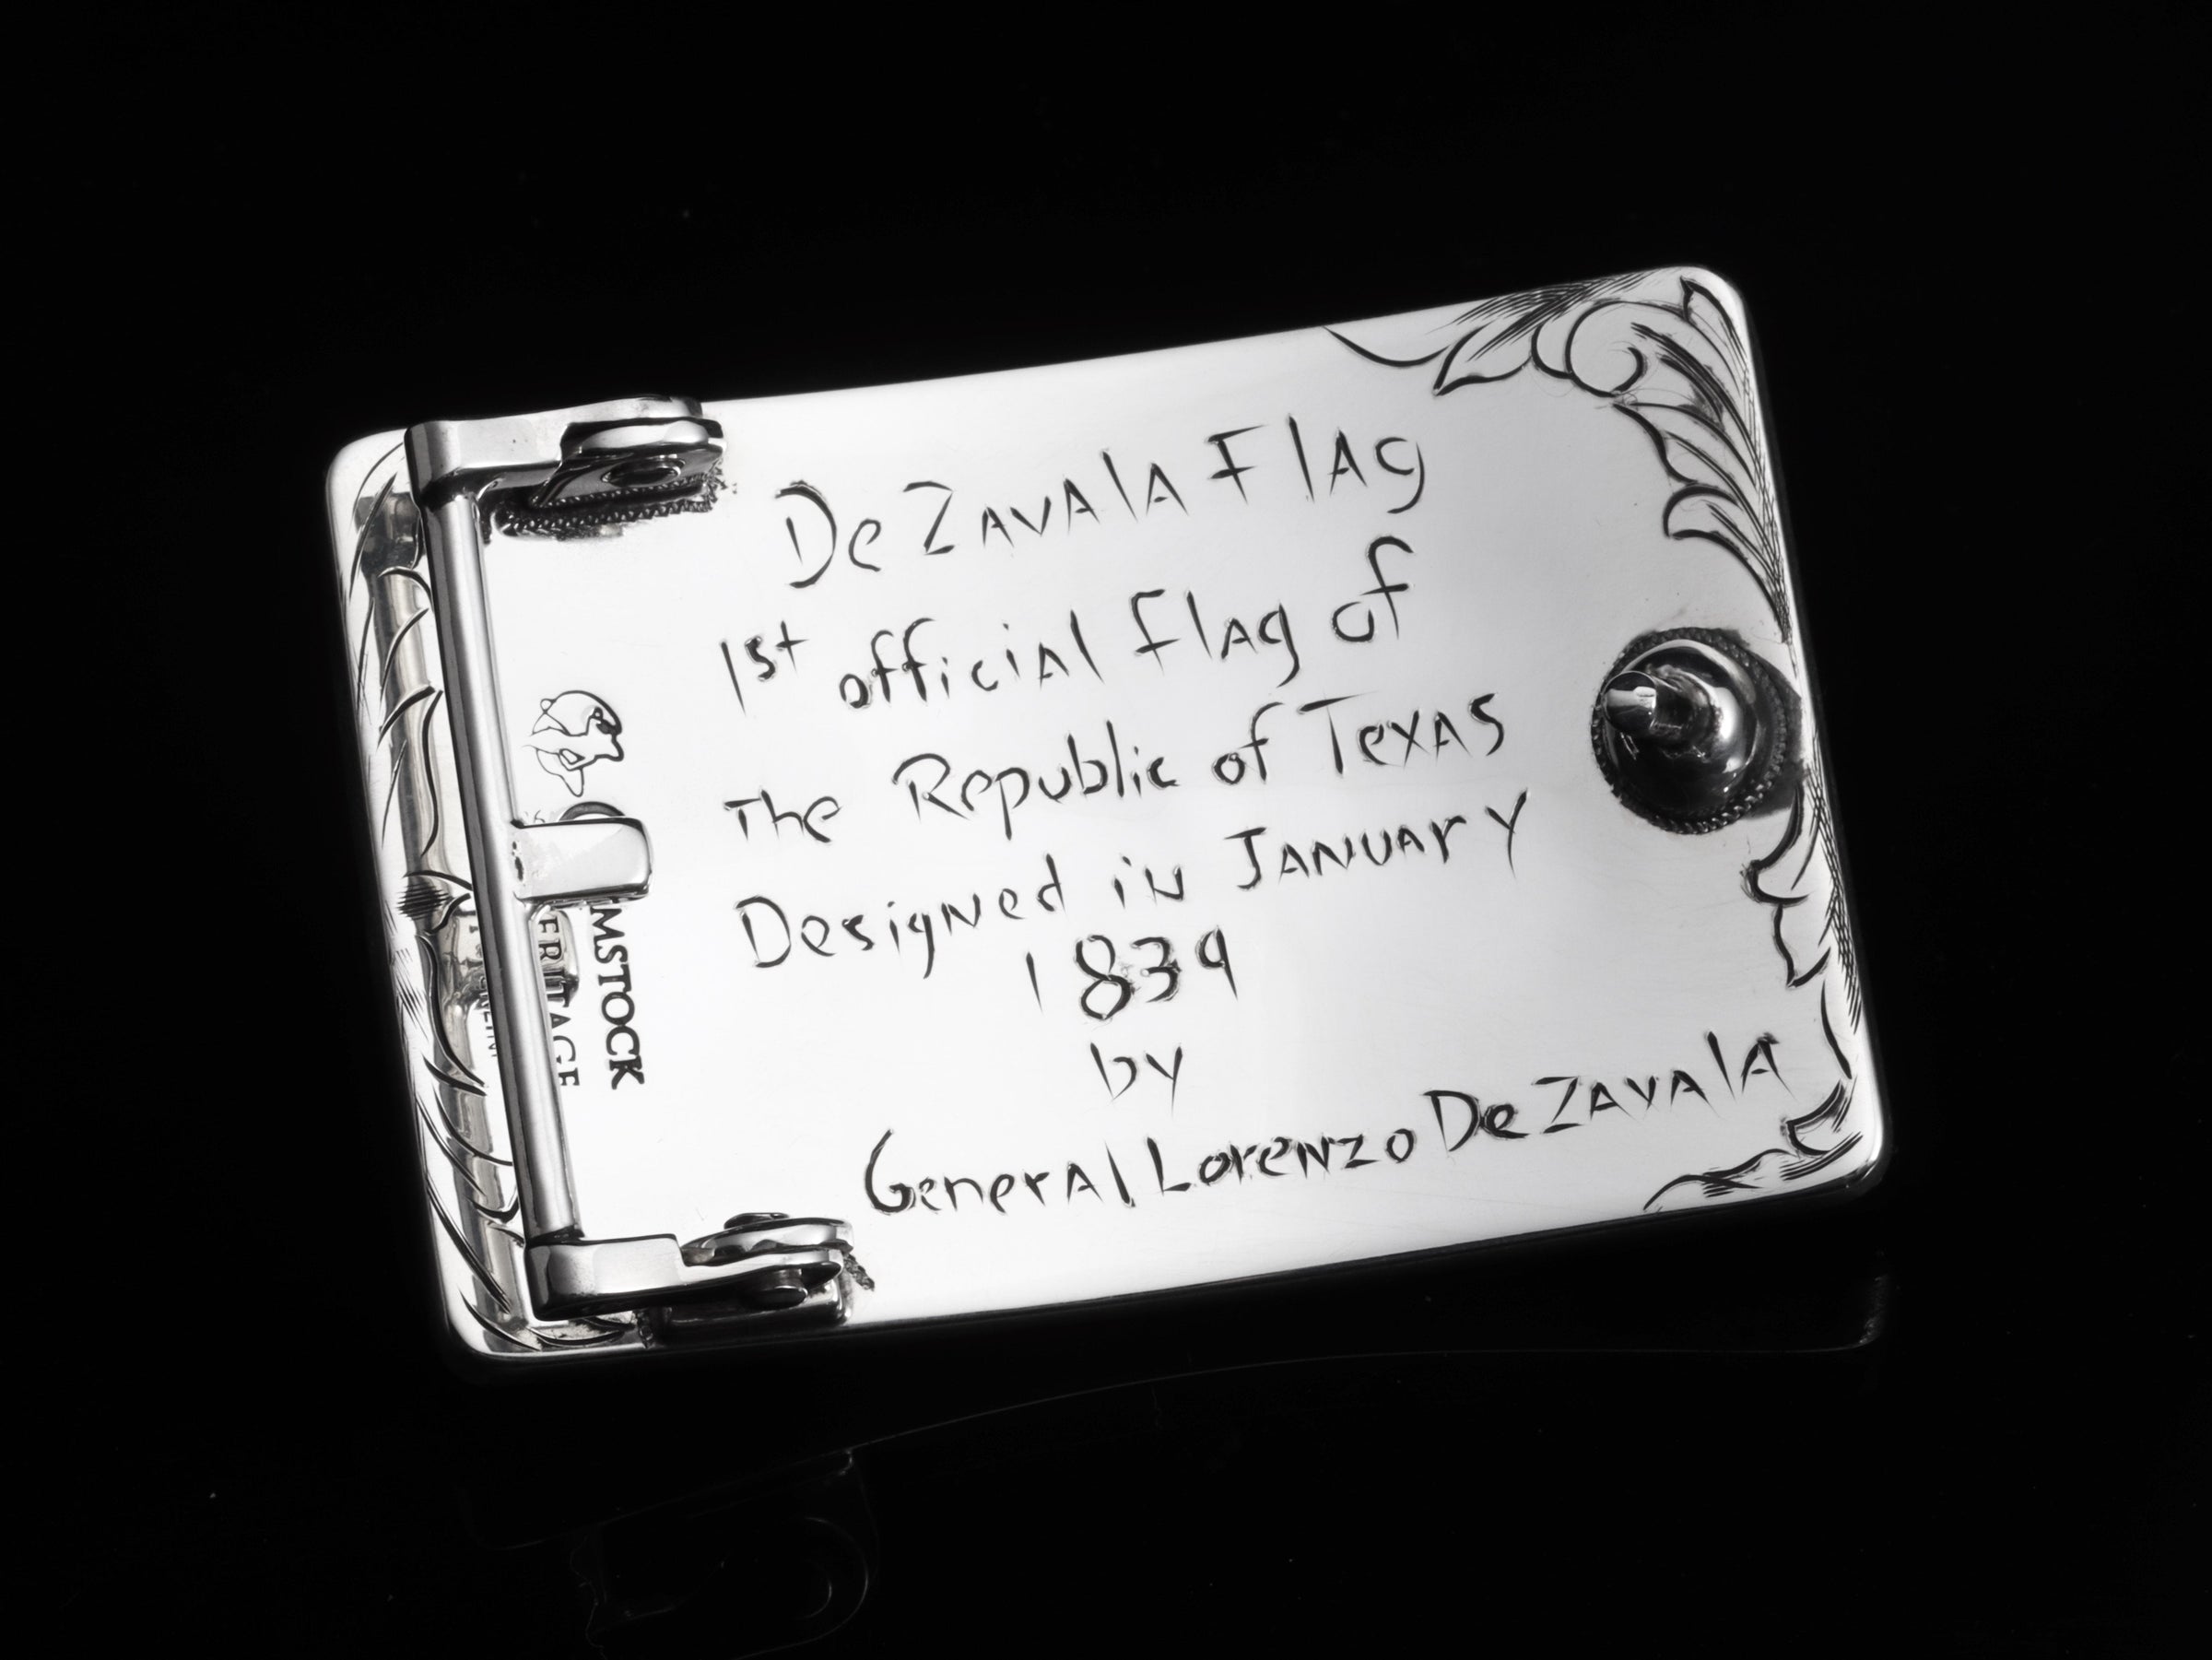 De Zavala Flag
1st official flag of
The Republic of Texas
Designed in January
1839
by
General Lorenzo De Zavala
MSTOCK
ERITAGE